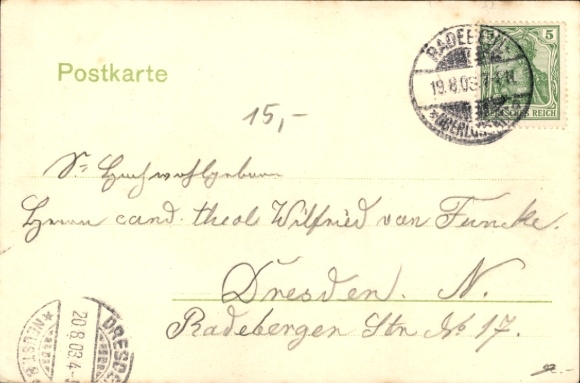 Postkarte
RADEBEUL
19.8.03
OBERLÖSSNITZ
5
DEUTSCHES REICH
15,-
Sr Hochwohlgeboren
Herrn cand. theol. Wilfried van Funcke.
Dresden. N.
Radebergen Str. No 17.
DRESDEN
20.8.03.4-
NEUST.